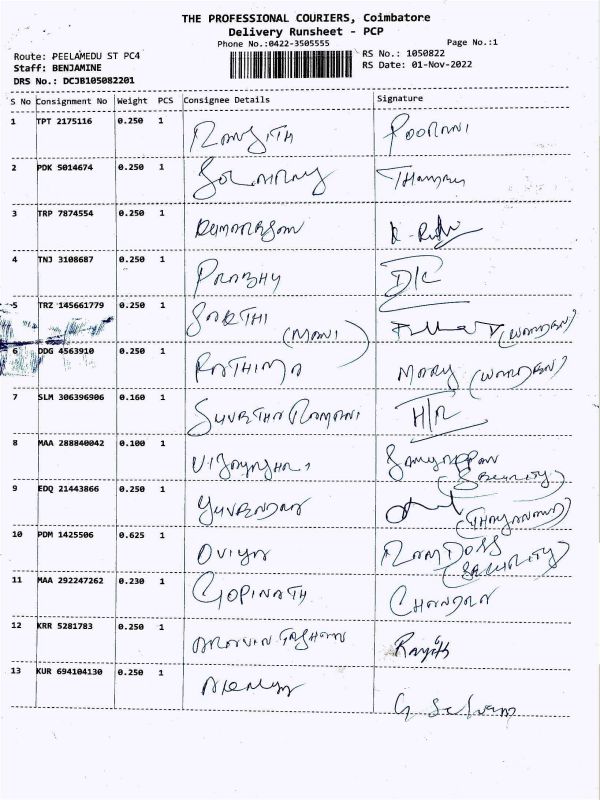 THE PROFESSIONAL COURIERS, Coimbatore
Delivery Runsheet - PCP
Phone No.:0422-3505555 Page No.:1
Route: PEELAMEDU ST PC4 RS No.: 1050822
Staff: BENJAMINE RS Date: 01-Nov-2022
DRS No.: DCJB105082201
S No Consignment No Weight PCS Consignee Details Signature
1 TPT 2175116 0.250 1 RANJITH POORANI
2 PDK 5014674 0.250 1
3 TRP 7874554 0.250 1
4 TNJ 3108687 0.250 1 PRABHU
5 TRZ 145661779 0.250 1 SAKTHI (MANI) (WARDEN)
6 DDG 4563910 0.250 1 RATHINA MARY (WARDEN)
7 SLM 306396906 0.160 1 H/R
8 MAA 288840042 0.100 1 (SECURITY)
9 EDQ 21443866 0.250 1
10 PDM 1425506 0.625 1 OVIYA RAMDOSS (SECURITY)
11 MAA 292247262 0.230 1 GOPINATH CHANDRA
12 KRR 5281783 0.250 1 Ranjith
13 KUR 694104130 0.250 1 G Selvam